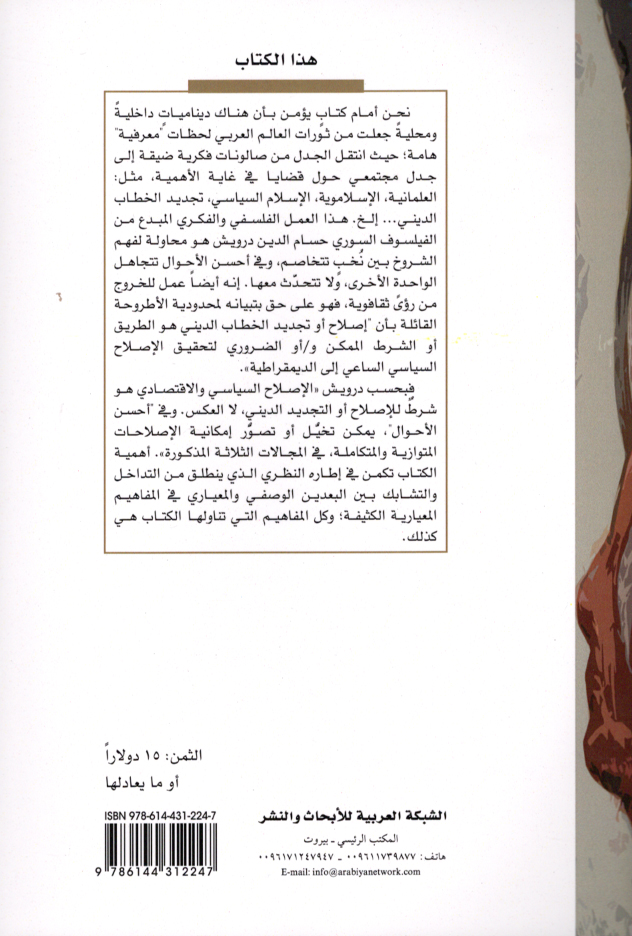 هذا الكتاب
نحن أمام كتاب يؤمن بأن هناك ديناميات داخليةً
ومحليةً جعلت من ثورات العالم العربي لحظات "معرفية"
هامة؛ حيث انتقل الجدل من صالونات فكرية ضيقة إلى
جدل مجتمعي حول قضايا في غاية الأهمية، مثل:
العلمانية، الإسلاموية، الإسلام السياسي، تجديد الخطاب
الديني... إلخ. هذا العمل الفلسفي والفكري المبدع من
الفيلسوف السوري حسام الدين درويش هو محاولة لفهم
الشروخ بين نُخبٍ تتخاصم، وفي أحسن الأحوال تتجاهل
الواحدة الأخرى، ولا تتحدّث معها. إنه أيضاً عمل للخروج
من رؤىً ثقافوية، فهو على حق بتبيانه لمحدودية الأطروحة
القائلة بأن "إصلاح أو تجديد الخطاب الديني هو الطريق
أو الشرط الممكن و/أو الضروري لتحقيق الإصلاح
السياسي الساعي إلى الديمقراطية».
فبحسب درويش «الإصلاح السياسي والاقتصادي هو
شرطٌ للإصلاح أو التجديد الديني، لا العكس. وفي "أحسن
الأحوال"، يمكن تخيُّل أو تصوُّر إمكانية الإصلاحات
المتوازية والمتكاملة، في المجالات الثلاثة المذكورة». أهمية
الكتاب تكمن في إطاره النظري الذي ينطلق من التداخل
والتشابك بين البعدين الوصفي والمعياري في المفاهيم
المعيارية الكثيفة؛ وكل المفاهيم التي تناولها الكتاب هي
كذلك.
الثمن: ١٥ دولاراً
أو ما يعادلها
ISBN 978-614-431-224-7
9 786144 312247
الشبكة العربية للأبحاث والنشر
المكتب الرئيسي ـ بيروت
هاتف: ٠٠٩٦١١٧٣٩٨٧٧ ـ ٠٠٩٦١٧١٢٤٧٩٤٧
E-mail: info@arabiyanetwork.com